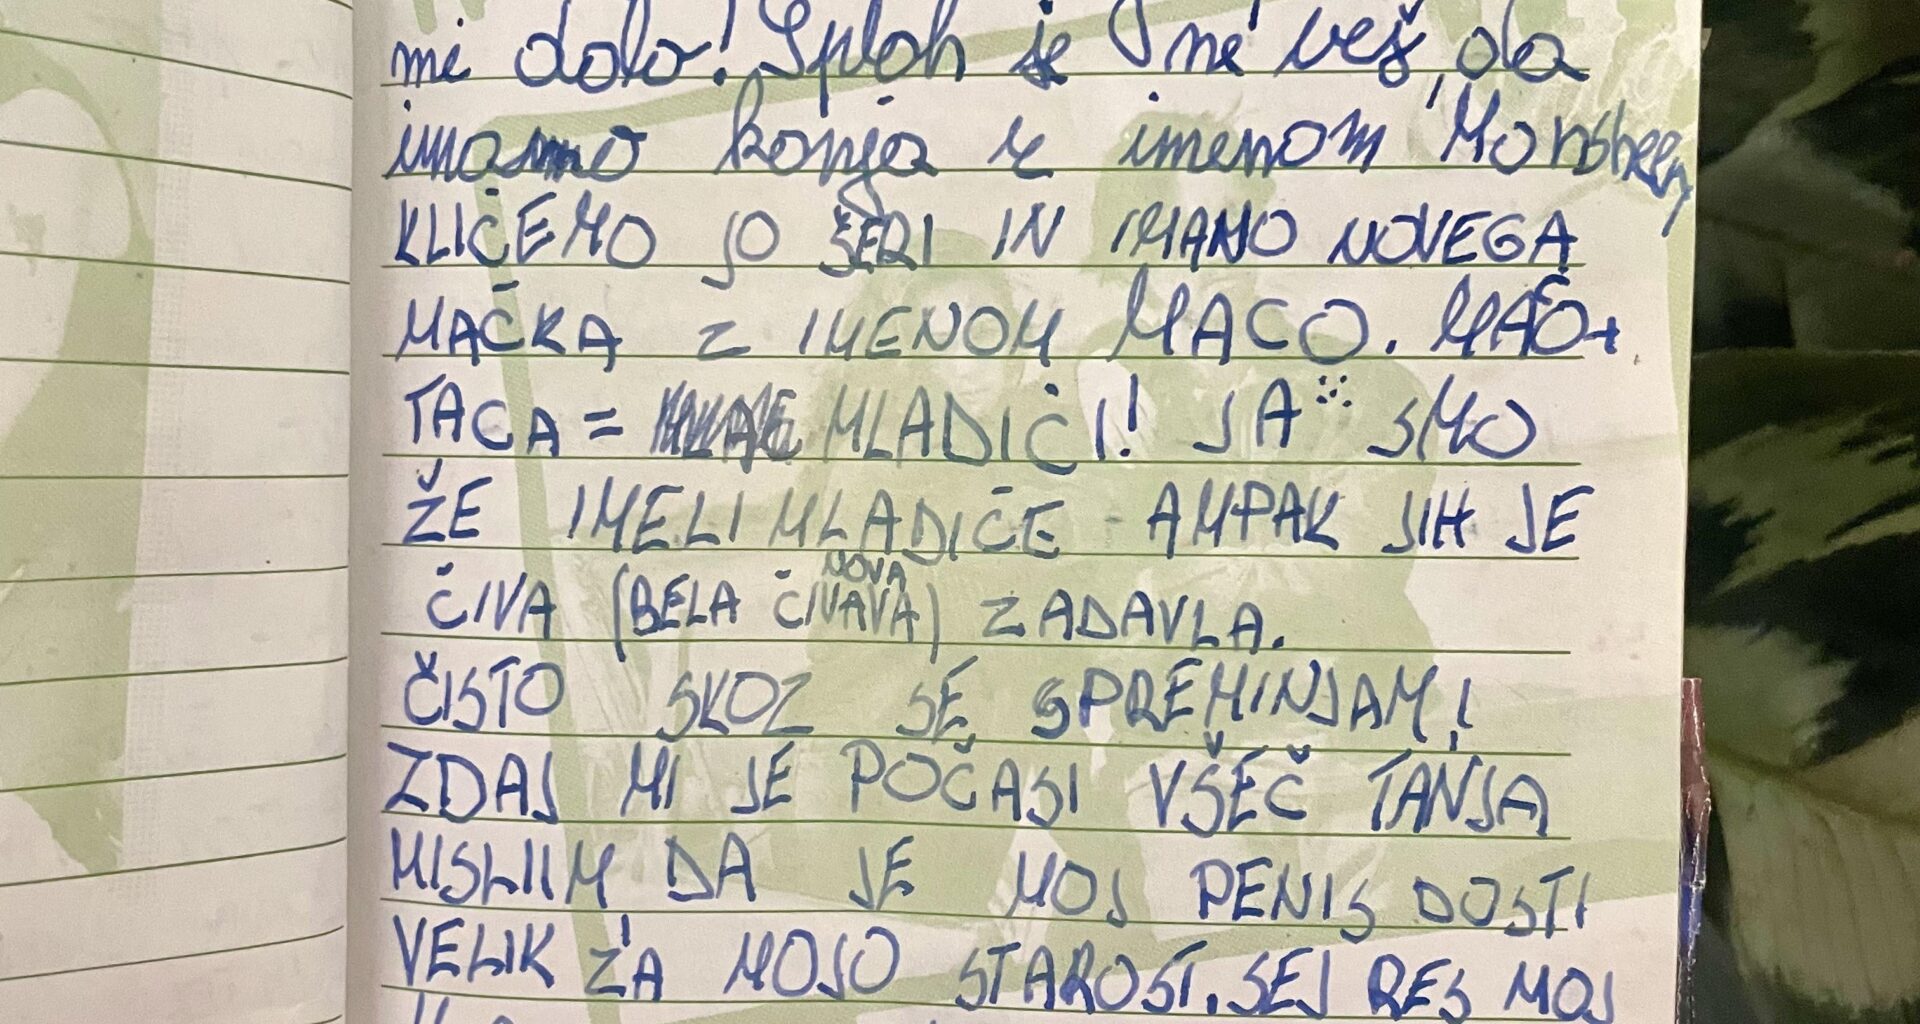 mi dolo! Sploh še ne veš, da
imamo konja z imenom
KLIČEMO JO ŠERI IN IMAMO NOVEGA
MAČKA Z IMENOM MACO. MACO+
TACA = MLADIČI! JA SMO
ŽE IMELI MLADIČE AMPAK JIH JE
ČIVA (BELA NOVA ČIVAVA) ZADAVLA.
ČISTO SKOZ SE SPREMINJAM!
ZDAJ MI JE POČASI VŠEČ TANJA
MISLIIM DA JE MOJ PENIS DOSTI
VELIK ZA MOJO STAROST. SEJ RES MOJ